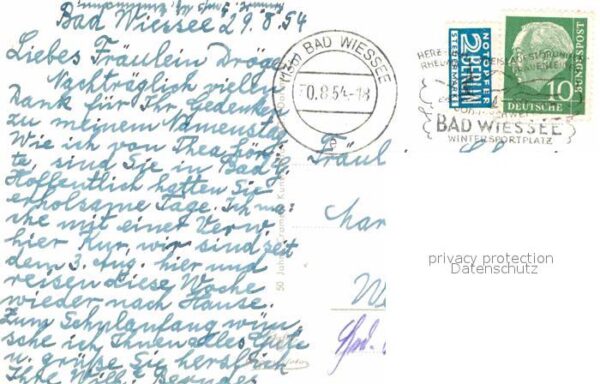 Bad Wiessee 29.8.54
Liebes Fräulein Dröge
Nachträglich vielen
Dank für Ihr Gedenken
zu meinem Namenstag
Wie ich von Thea hörte
te, sind Sie in Bad
Hoffentlich hatten Sie
erholsame Tage. Ich ma-
che mit einer Verw.
hier Kur, wir sind seit
dem 3. Aug. hier und
reisen diese Woche
wieder nach Hause.
Zum Schulanfang wün-
sche ich Ihnen alles Gute
u. grüße Sie herzlich
Ihre Wilh.
(13b) BAD WIESSEE
0.8.54-18
NOTOPFER
2 BERLIN
STEUERMARKE
DEUTSCHE
BUNDESPOST
10
HERZ-
RHEUMA
BAD WIESSEE
WINTERSPORTPLATZ
Fräul
Mar
W
50 Jahre
privacy protection
Datenschutz